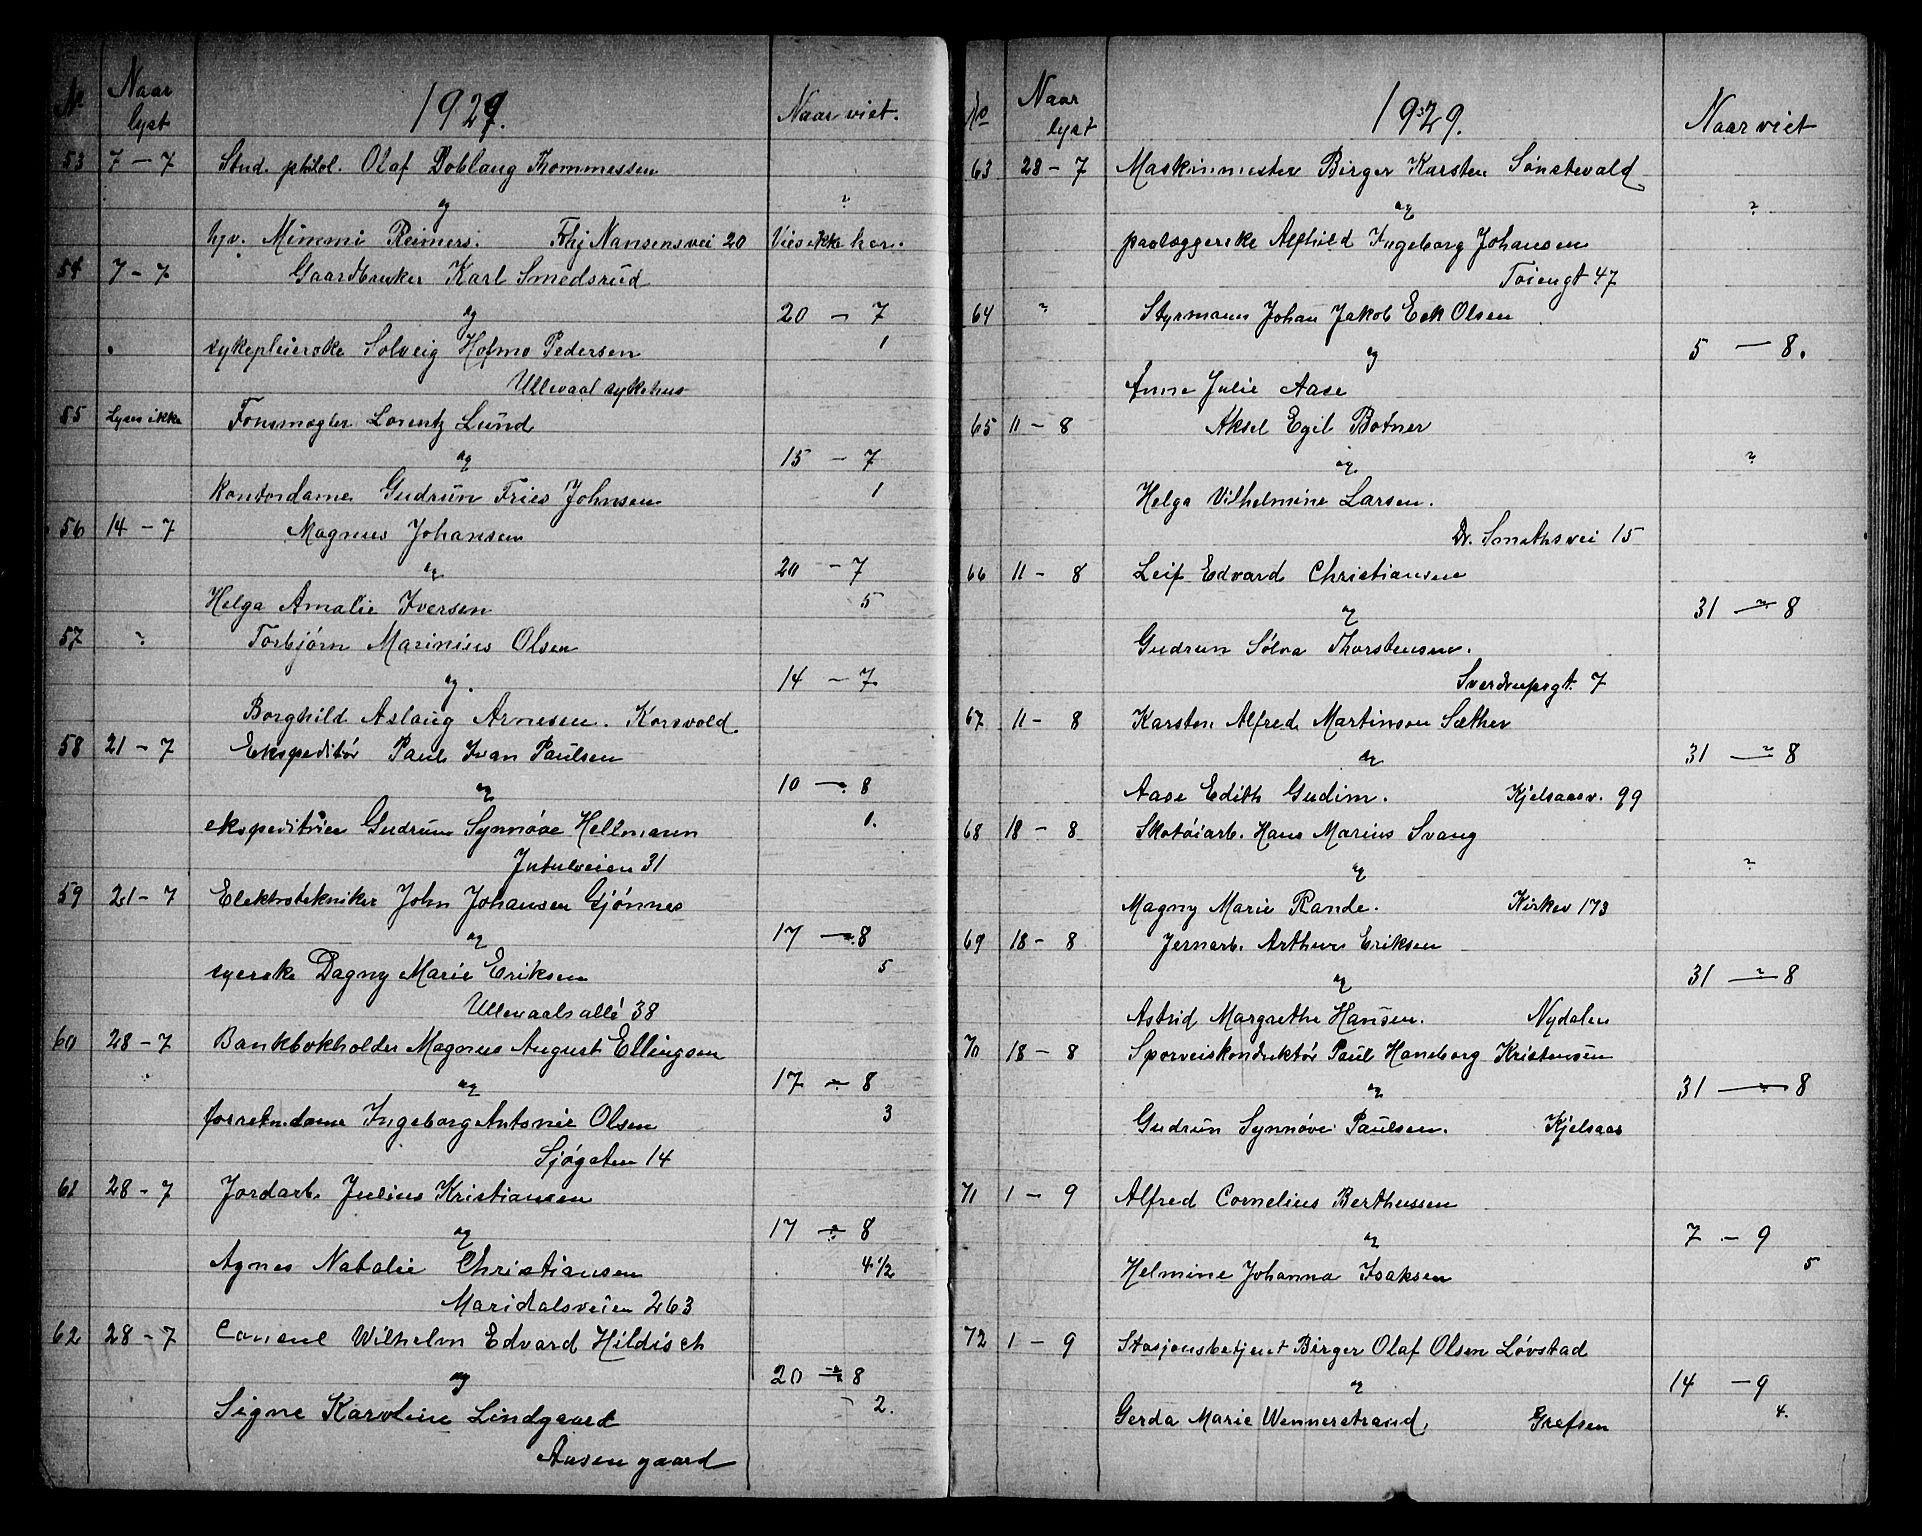 No Naar lyst 1929. Naar viet.
53 7 – 7 Stud. philol. Olaf Doblaug Thommessen
og "
hjv. Mimmi Reimers. Frhj Nansensvei 20 Vies ikke her.
54 7 – 7 Gaardbruker Karl Smedsrud
og 20 – 7
sykepleierske Solveig Hofmo Pedersen 1
Ullevaal sykehus
55 Lyses ikke Fonsmægler Lorentz Lund
og 15 – 7
Kontordame Gudrun Fries Johnsen 1
56 14 – 7 Magnus Johansen
og 20 – 7
Helga Amalie Iversen 5
57 " Torbjørn Marinius Olsen
og. 14 – 7
Borghild Aslaug Arnesen. Korsvold
58 21 – 7 Ekspeditør Paul Ivan Paulsen
og 10 – 8
ekspeditrice Gudrun Synnøve Hellmann 1.
Jutulveien 31
59 21 – 7 Elektrotekniker John Johansen Gjønnes
og 17 – 8
syerske Dagny Marie Eriksen 5
Ullevaalsallé 38
60 28 – 7 Bankbokholder Magnus August Ellingsen
og 17 – 8
forretn.dame Ingeborg Antonie Olsen 3
Sjøgaten 14
61 28 – 7 Jordarb. Julius Kristiansen
og 17 – 8
Agnes Natalie Christiansen 4 1/2
Maridalsveien 263
62 28 – 7 Consul Wilhelm Edvard Hildisch
og 20 – 8
Signe Karoline Lindgaard – 2.
Aasen gaard
No Naar lyst 1929. Naar viet
63 28 – 7 Maskinmester Birger Karsten Sønstevald
og "
paalæggerske Alfhild Ingeborg Johansen
Tøiengt 47
64 " Styrmann Johan Jakob Eek Olsen
og 5 – 8.
Anne Julie Aase
65 11 – 8 Aksel Egil Botner
og "
Helga Vilhelmine Larsen.
Dr. Smithsvei 15
66 11 – 8 Leif Edvard Christiansen
og 31 – 8
Gudrun Sølva Thorstensen.
Sverdrupsgt. 7
67 11 – 8 Karsten Alfred Martinson Sæther
og 31 – 8
Aase Edith Gudim. Kjelsaasv. 99
68 18 – 8 Skotøiarb. Hans Marius Svang
og "
Magny Marie Rande. Kirkev 173
69 18 – 8 Jernarb. Arthur Eriksen
og 31 – 8
Astrid Margrethe Hansen. Nydalen
70 18 – 8 Sporveiskonduktør Paul Haneborg Kristensen
og 31 – 8
Gudrun Synnøve Paulsen. Kjelsaas
71 1 – 9 Alfred Cornelius Berthussen
og 7 – 9
Helmine Johanna Isaksen 5
72 1 – 9 Stasjonsbetjent Birger Olaf Olsen Løvstad
og 14 – 9
Gerda Marie Wennerstrand. Grefsen 4.